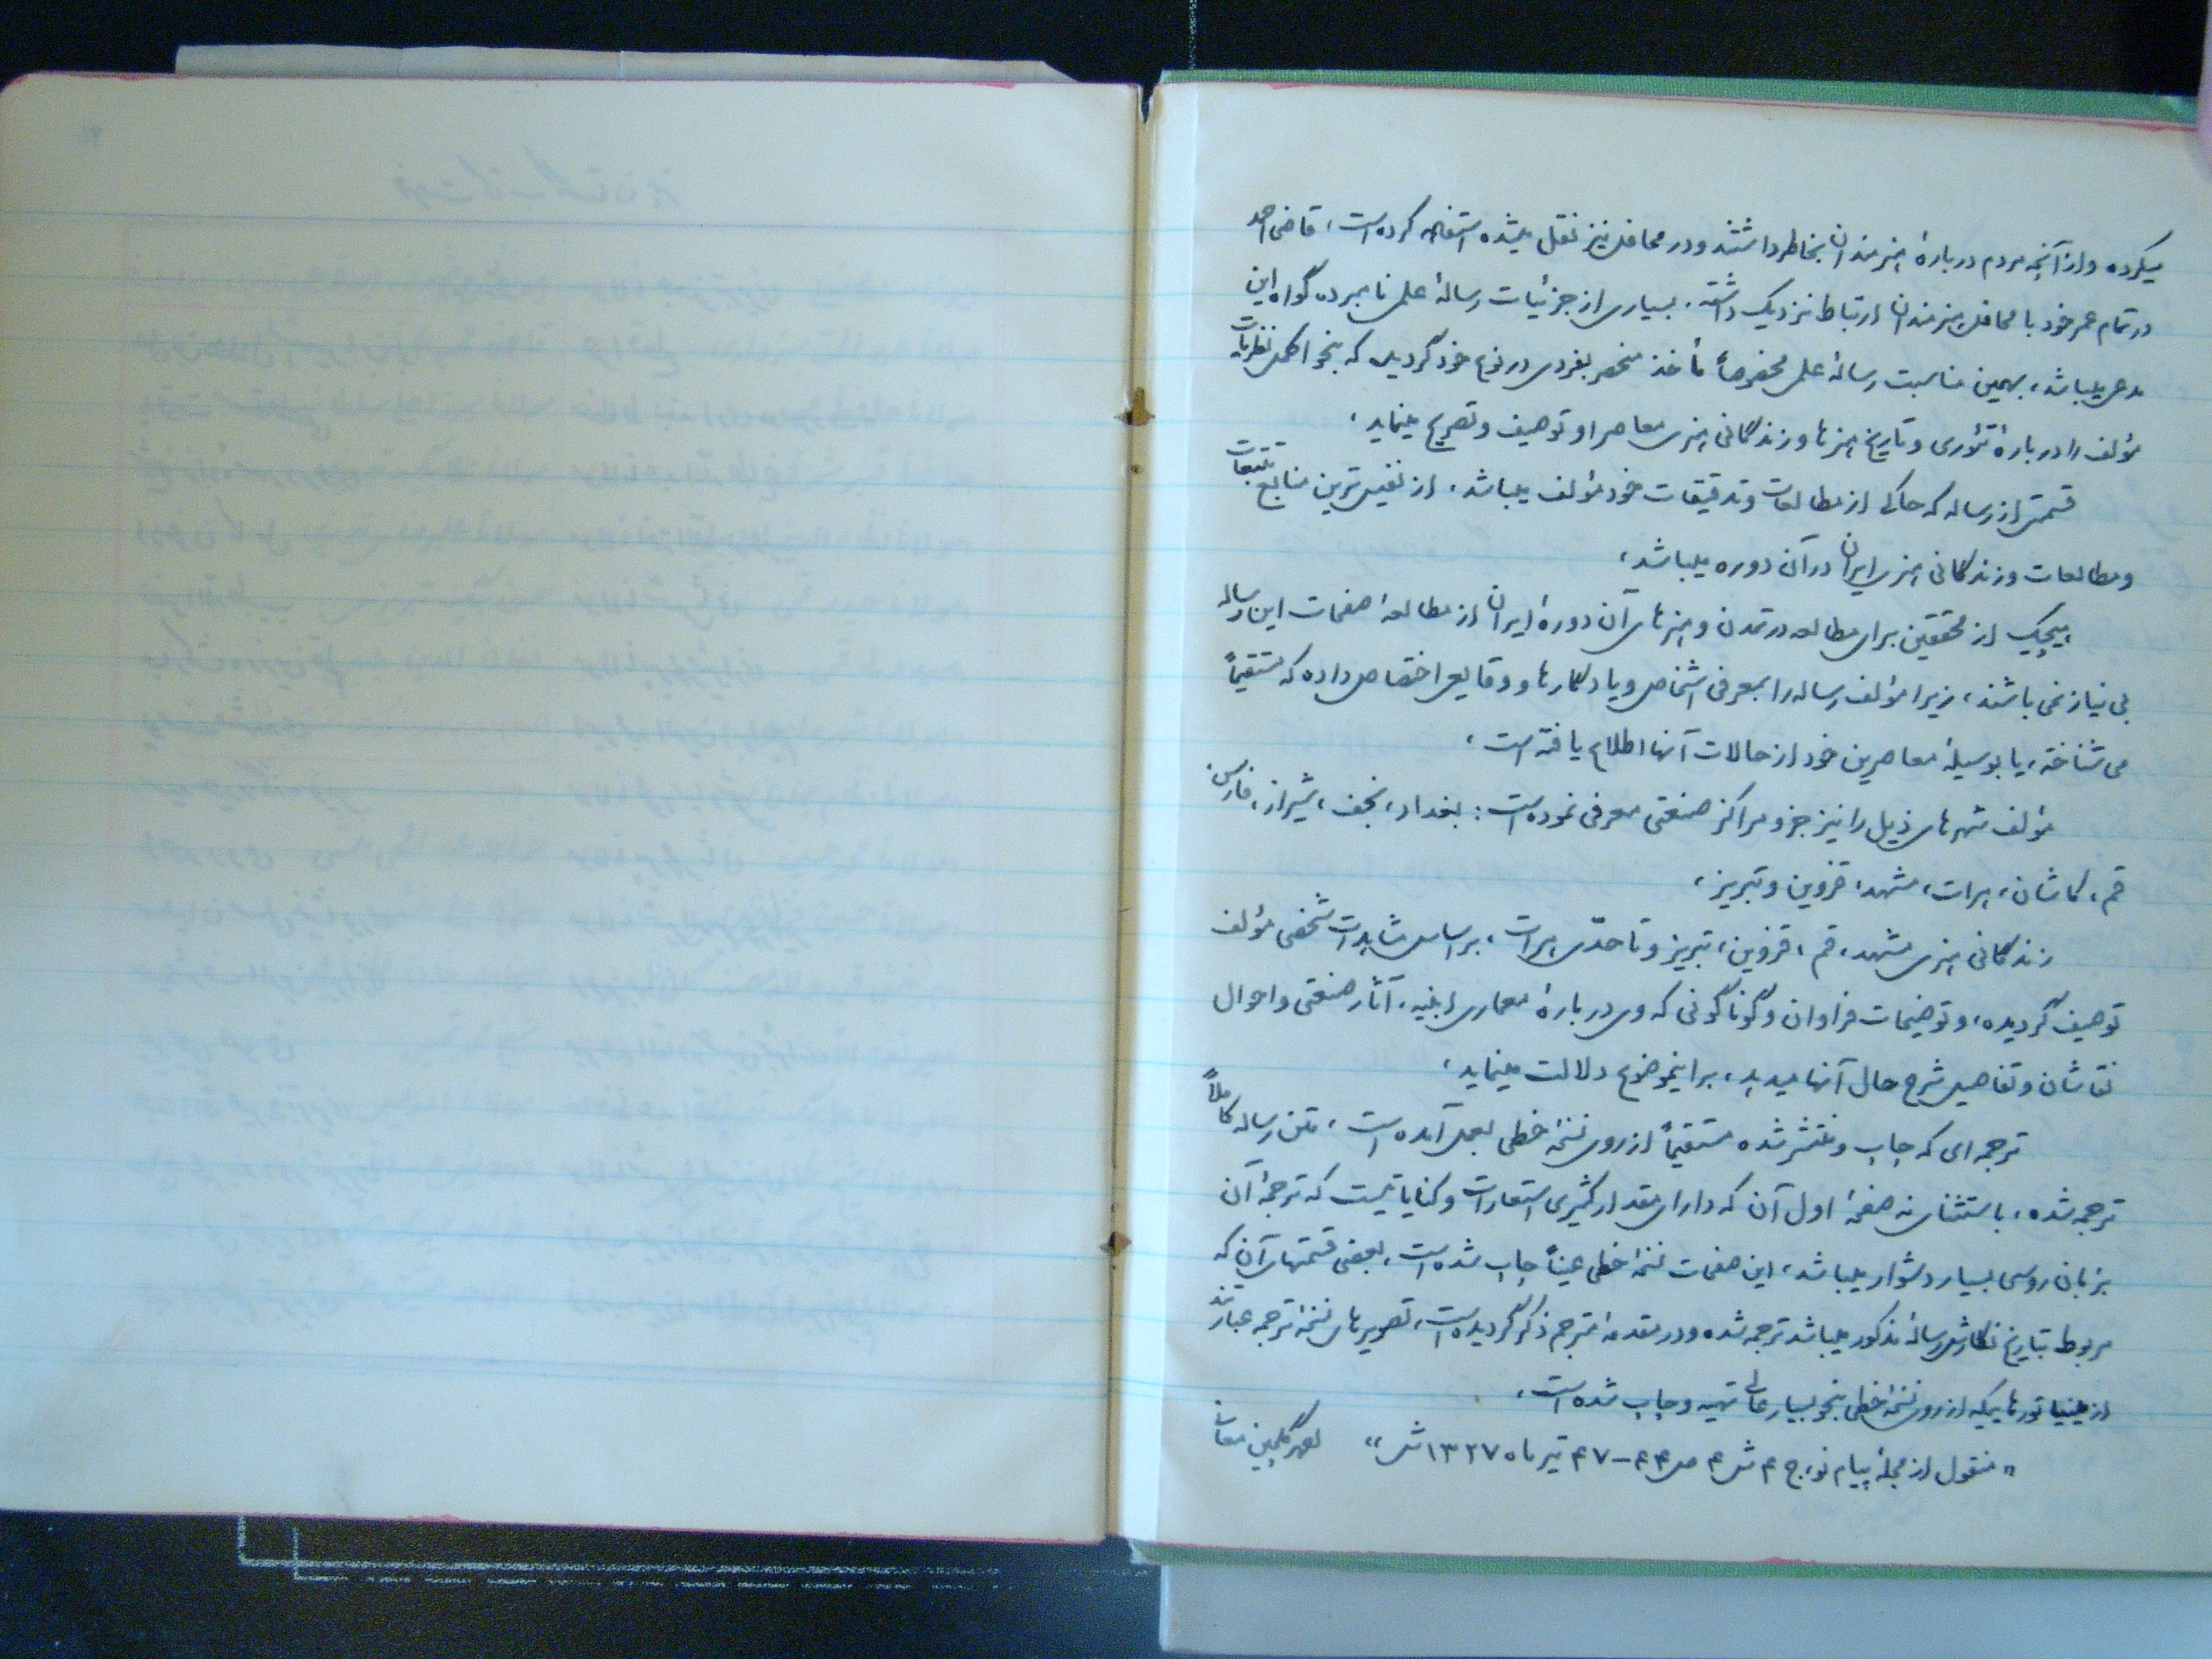 میکرده و از آنچه مردم دربارهٔ هنرمندان بخاطر داشتند و در محافل نیز نقل میشده استفاده کرده است، قاضی احمد
در تمام عمر خود با محافل هنرمندان ارتباط نزدیک داشته، بسیاری از جزئیات رسالهٔ علمی نامبرده گواه این
مدعی میباشد، بهمین مناسبت رسالهٔ علمی مخصوصاً مأخذ منحصر بفردی در نوع خود گردیده که بنحو اکمل نظریات
مؤلف را دربارهٔ تئوری و تاریخ هنرها و زندگانی هنری معاصر او توصیف و تصریح مینماید،
قسمتی از رساله که حاکی از مطالعات و تدقیقات خود مؤلف میباشد، از نفیس‌ترین منابع تتبعات
و مطالعات و زندگانی هنری ایران در آن دوره میباشد،
هیچیک از محققین برای مطالعه در تمدن و هنرهای آن دورهٔ ایران از مطالعهٔ صفحات این رساله
بی نیاز نمی باشند، زیرا مؤلف رساله را بمعرفی اشخاص و یادگارها و وقایعی اختصاص داده که مستقیماً
می شناخته، یا بوسیلهٔ معاصرین خود از حالات آنها اطلاع یافته است،
مؤلف شهرهای ذیل را نیز جزو مراکز صنعتی معرفی نموده است: بغداد، نجف، شیراز، فارس،
قم، کاشان، هرات، مشهد، قزوین و تبریز،
زندگانی هنری مشهد، قم، قزوین، تبریز و تا حدّی هرات، بر اساس مشاهدات شخصی مؤلف
توصیف گردیده، و توضیحات فراوان و گوناگونی که وی دربارهٔ معماری ابنیه، آثار صنعتی و احوال
نقاشان و تفاصیل شرح حال آنها میدهد، بر اینموضوع دلالت مینماید،
ترجمه ای که چاپ و منتشر شده مستقیماً از روی نسخهٔ خطی بعمل آمده است، متن رساله کاملاً
ترجمه شده، باستثنای نه صفحهٔ اول آن که دارای مقدار کثیری استعارات و کنایاتیست که ترجمهٔ آن
بزبان روسی بسیار دشوار میباشد، این صفحات نسخهٔ خطی عیناً چاپ شده است، بعضی قسمتهای آن که
مربوط بتاریخ نگارش رسالهٔ مذکور میباشد ترجمه شده و در مقدمهٔ مترجم ذکر گردیده است، تصویرهای نسخهٔ ترجمه عبارتند
از مینیاتورهاییکه از روی نسخهٔ خطی بنحو بسیار عالی تهیه و چاپ شده است،
«منقول از مجلهٔ پیام نو، ج ۴ ش ۴ ص ۴۴-۴۷ تیر ماه ۱۳۲۷ ش» احمد گلچین معانی